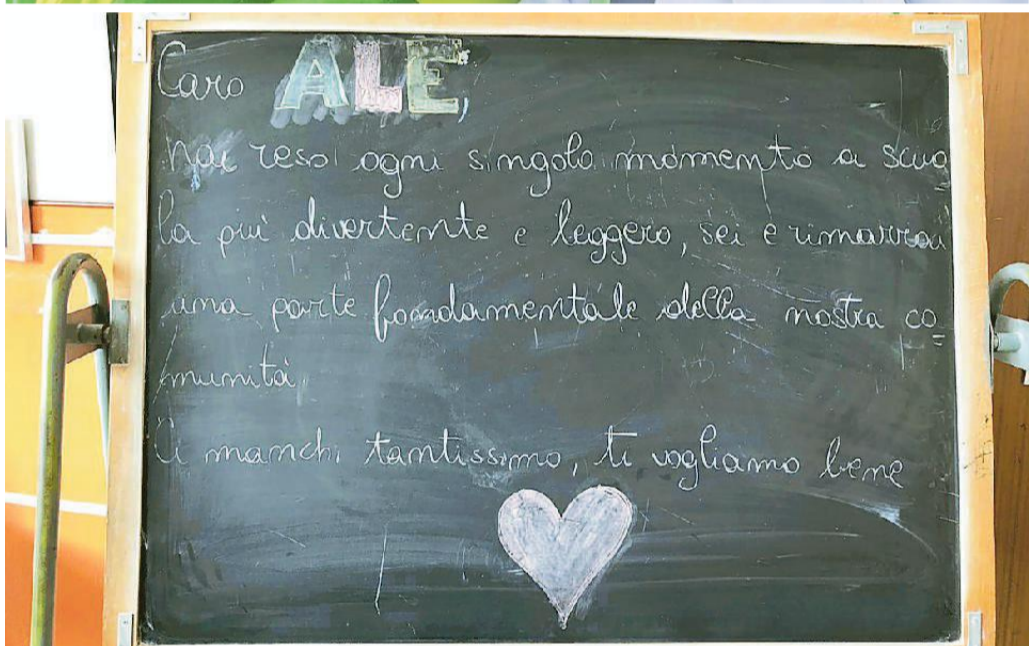 Caro ALE,
hai reso ogni singolo momento a scuo
la più divertente e leggero, sei e rimarrai
una parte fondamentale della nostra co
munità.
Ci manchi tantissimo, ti vogliamo bene